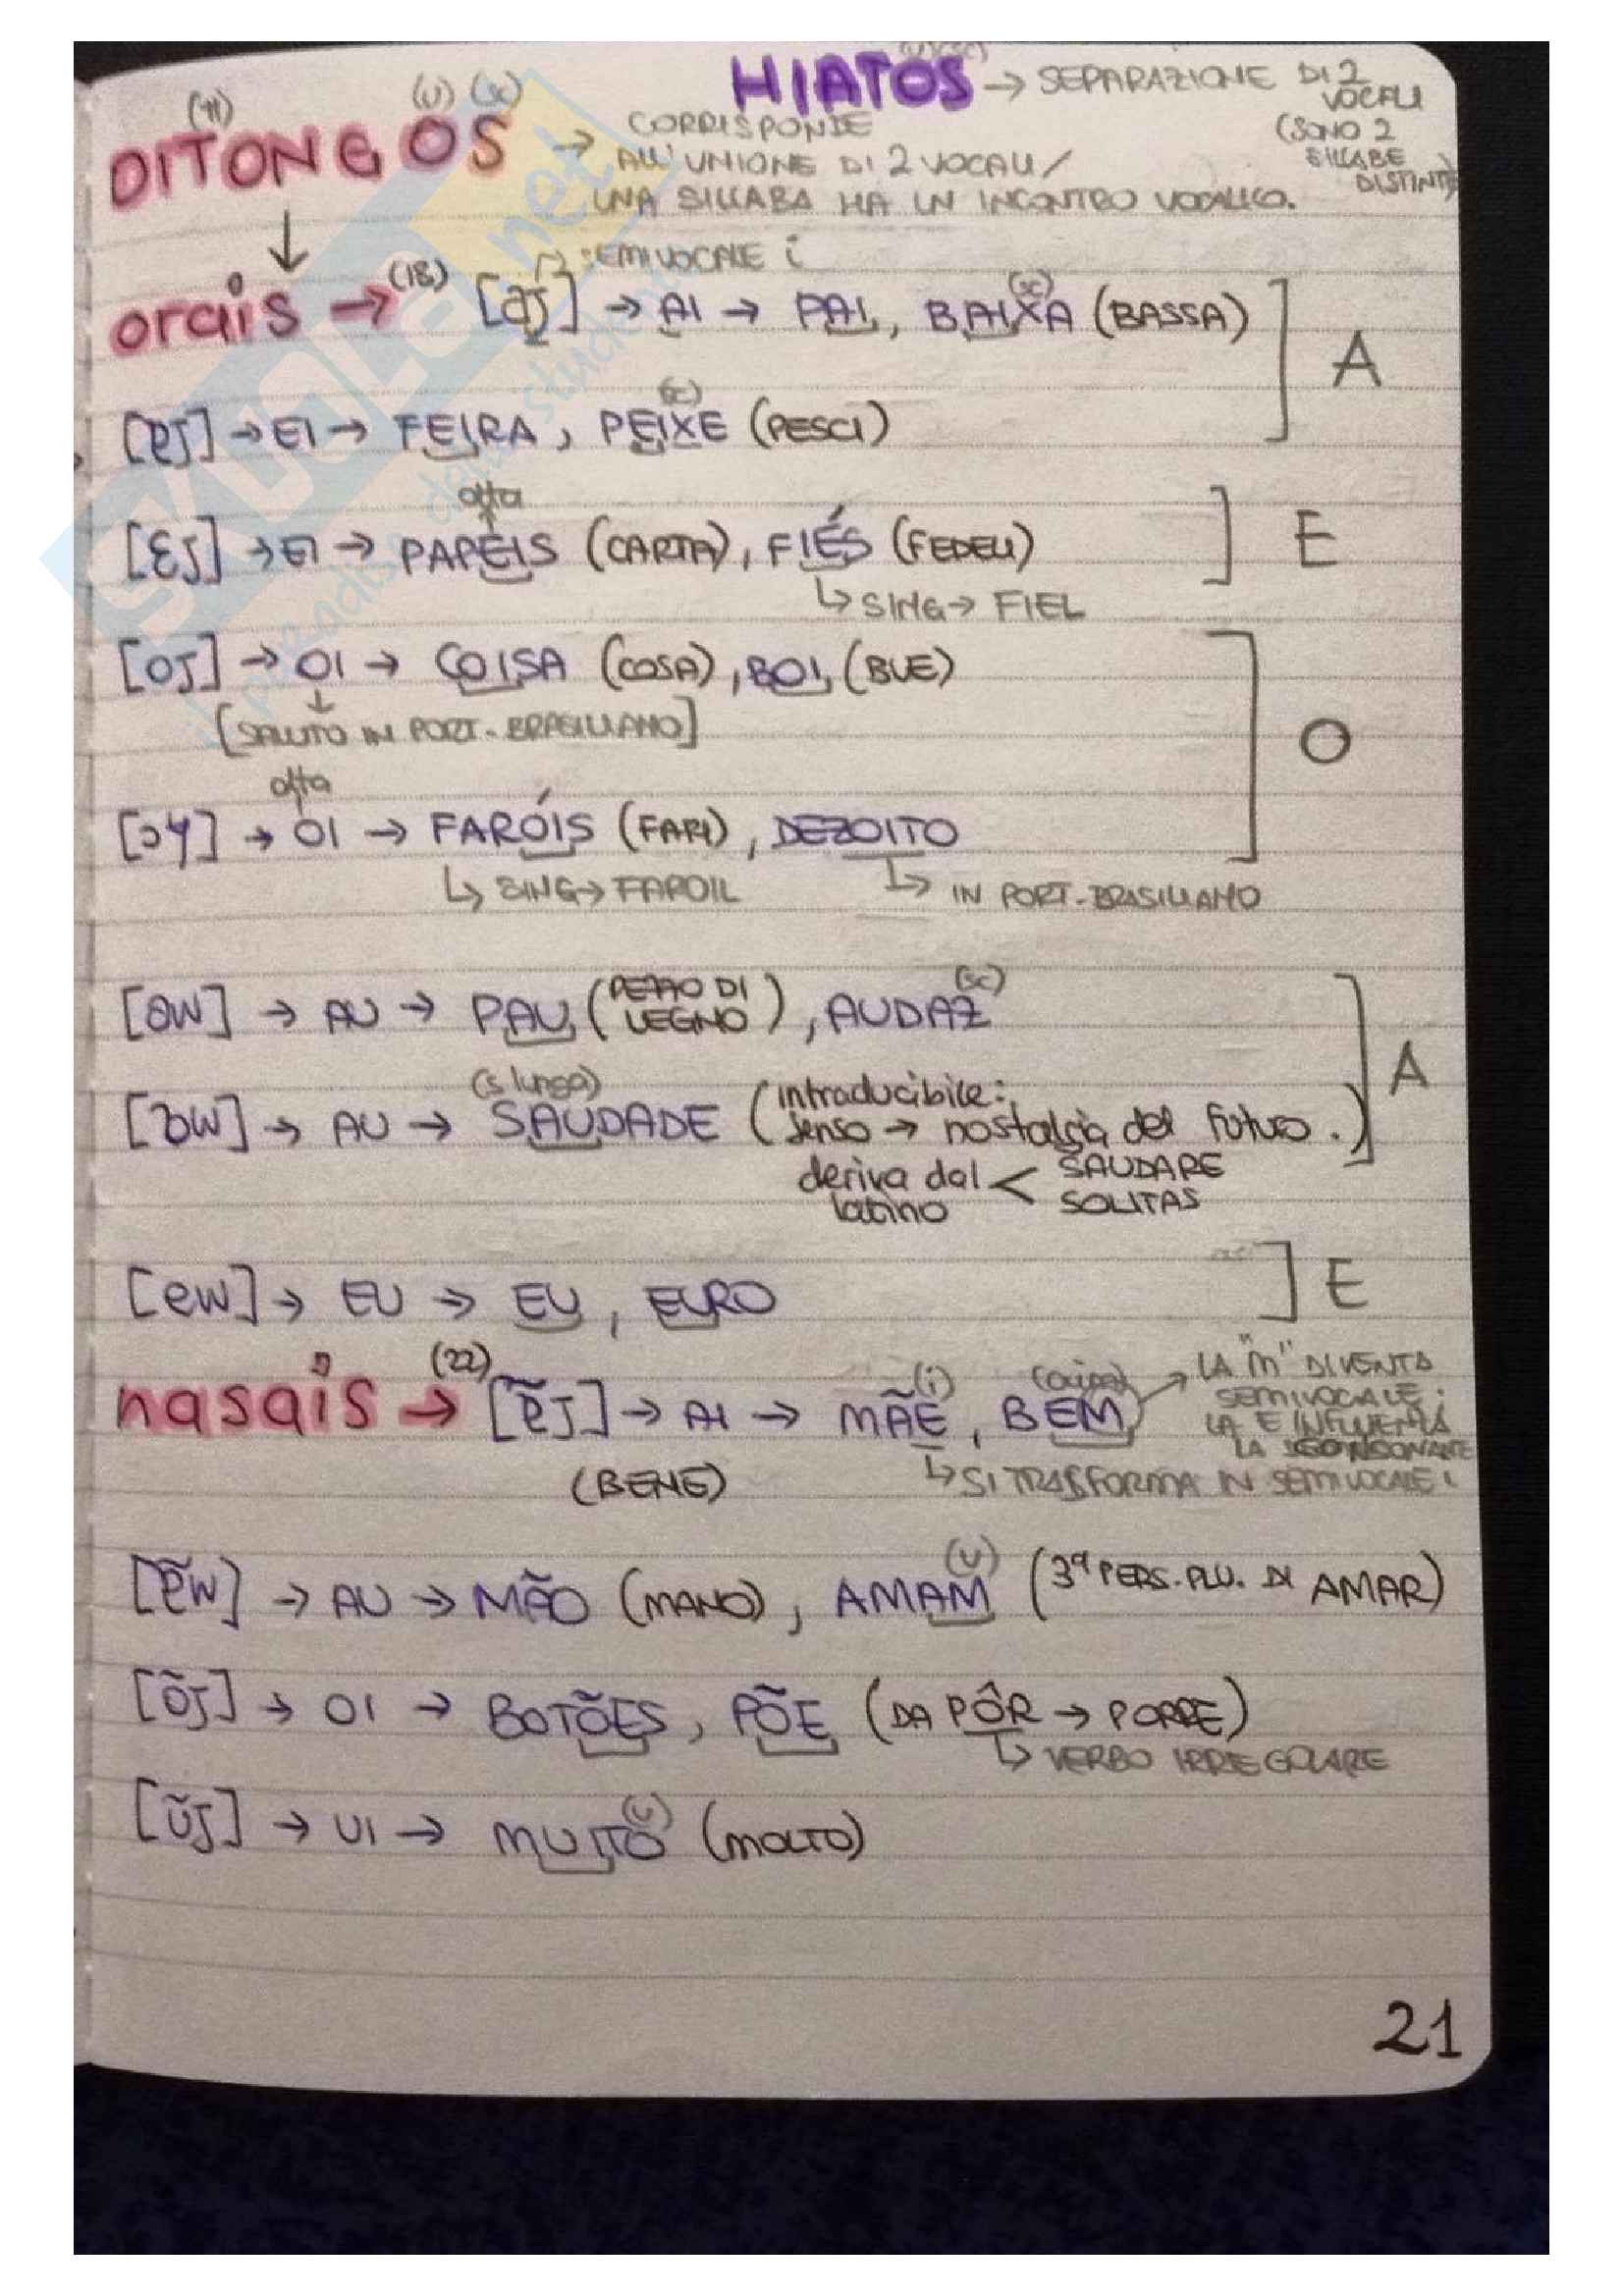 HIATOS → SEPARAZIONE DI 2 VOCALI
(SONO 2 SILLABE DISTINTE)
(u) (sc)
DITONGOS → CORRISPONDE
ALL'UNIONE DI 2 VOCALI/
UNA SILLABA HA UN INCONTRO VOCALICO.
SEMIVOCALE i
orais → (18) [aj] → AI → PAI, BAIXA (BASSA) ] A
(sc)
[ɐj] → EI → FEIRA, PEIXE (PESCI)
(sc)
[ɛj] → EI → PAPÉIS (CARTA), FIÉS (FEDELI) ] E
↳ SING → FIEL
[oj] → OI → COISA (COSA), BOI (BUE) ] O
[SALUTO IN PORT. BRASILIANO]
[ɔy] → OI → FARÓIS (FARI), DEZOITO
↳ SING → FAROIL
↳ IN PORT. BRASILIANO
[aw] → AU → PAU (PEZZO DI LEGNO), AUDAZ ] A
(sc)
(s lunga)
AU → SAUDADE (intraducibile:
senso → nostalgia del futuro.)
deriva dal latino < SAUDARE
SOLITAS
[ew] → EU → EU, EURO ] E
nasais → (22) [ɐ̃j] → AI → MÃE, BEM
(i)
→ LA "m" DIVENTA
SEMIVOCALE.
LA E INFLUENZA
LA CONSONANTE
↳ SI TRASFORMA IN SEMIVOCALE i
(BENE)
[ɐ̃w] → AU → MÃO (MANO), AMAM (3ª PERS. PLU. DI AMAR)
(u)
[õj] → OI → BOTÕES, PÕE (DA PÔR → PORRE)
↳ VERBO IRREGOLARE
[ũj] → UI → MUITO (MOLTO)
(u)
21